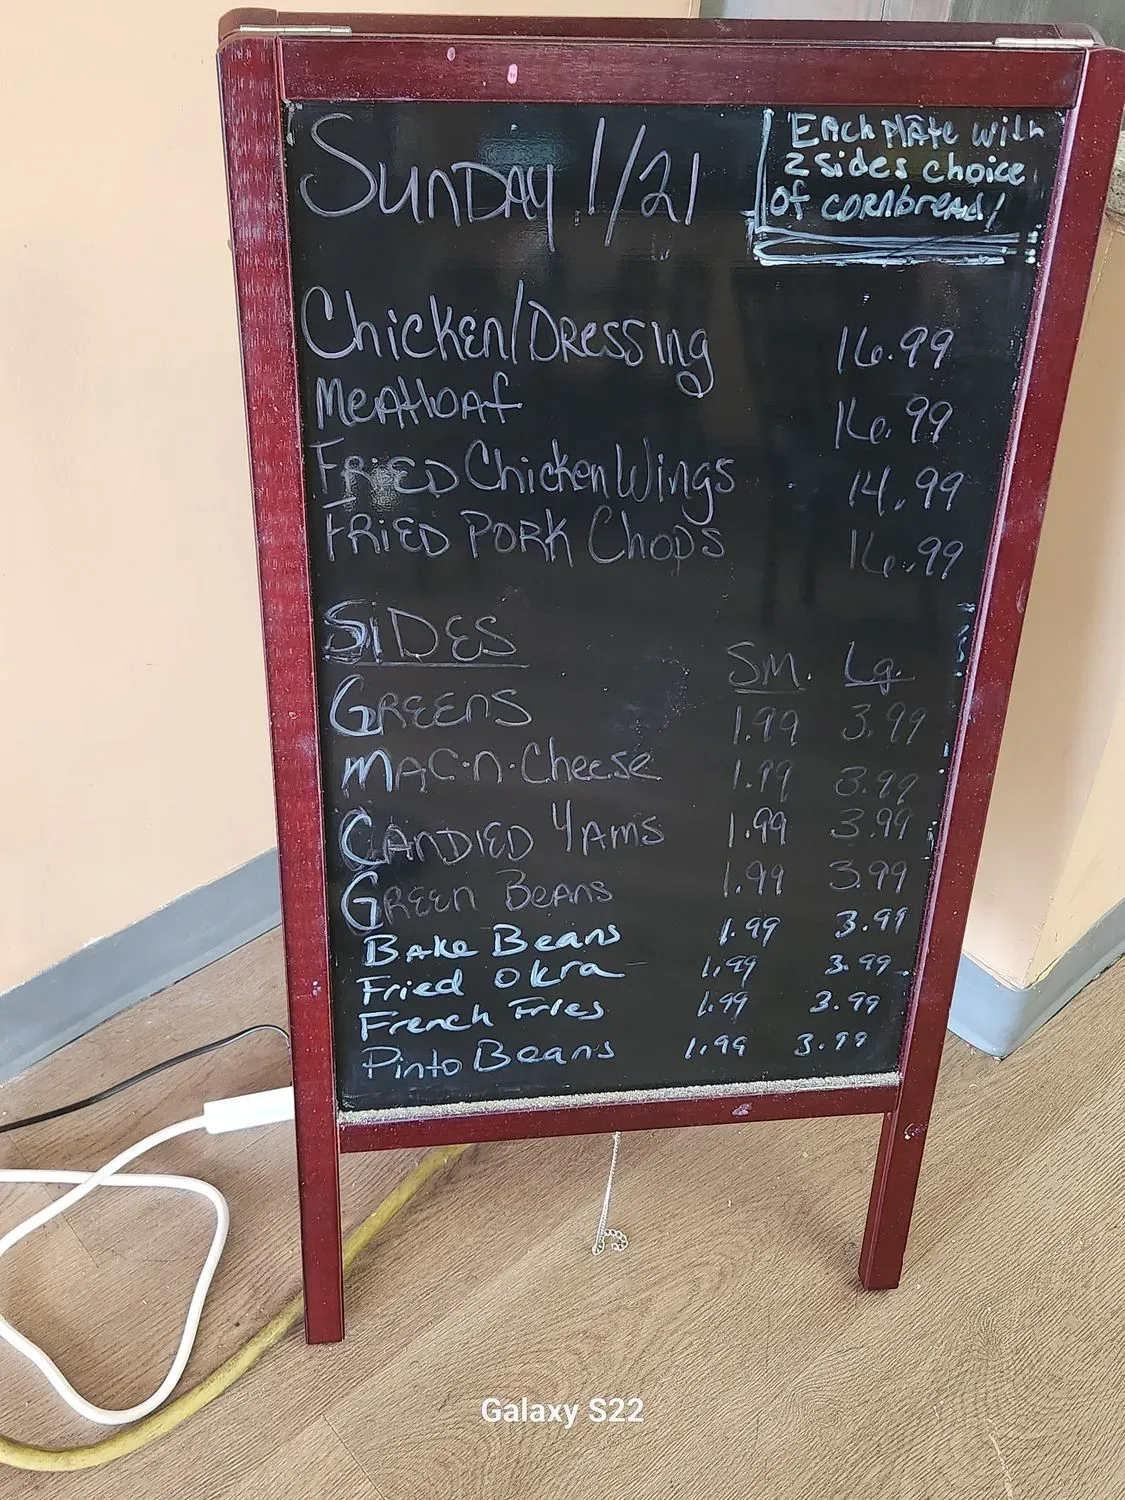 SUNDAY 1/21
Each plate with
2 sides choice
of cornbread!
Chicken/Dressing 16.99
Meatloaf 16.99
Fried Chicken Wings 14.99
Fried Pork Chops 16.99
SIDES Sm. Lg.
Greens 1.99 3.99
Mac·n·Cheese 1.99 3.99
Candied Yams 1.99 3.99
Green Beans 1.99 3.99
Bake Beans 1.99 3.99
Fried Okra 1.99 3.99
French Fries 1.99 3.99
Pinto Beans 1.99 3.99
Galaxy S22